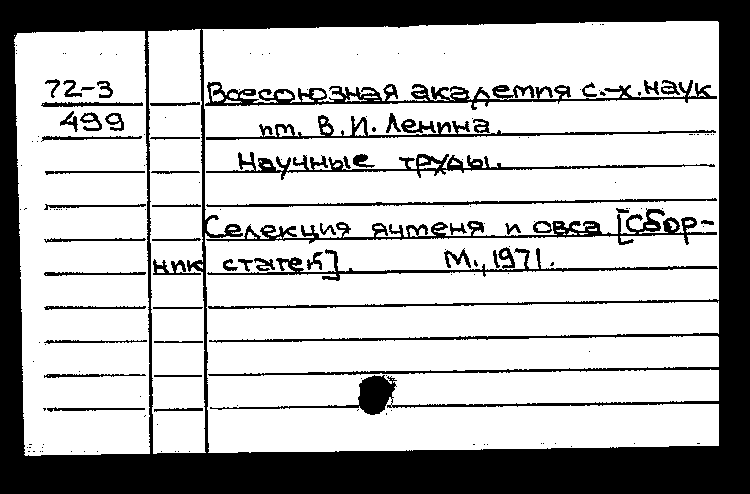 72-3 Всесоюзная академия с.-х. наук
499 им. В.И. Ленина.
Научные труды.
Селекция ячменя и овса [Сбор-
ник статей]. М., 1971.